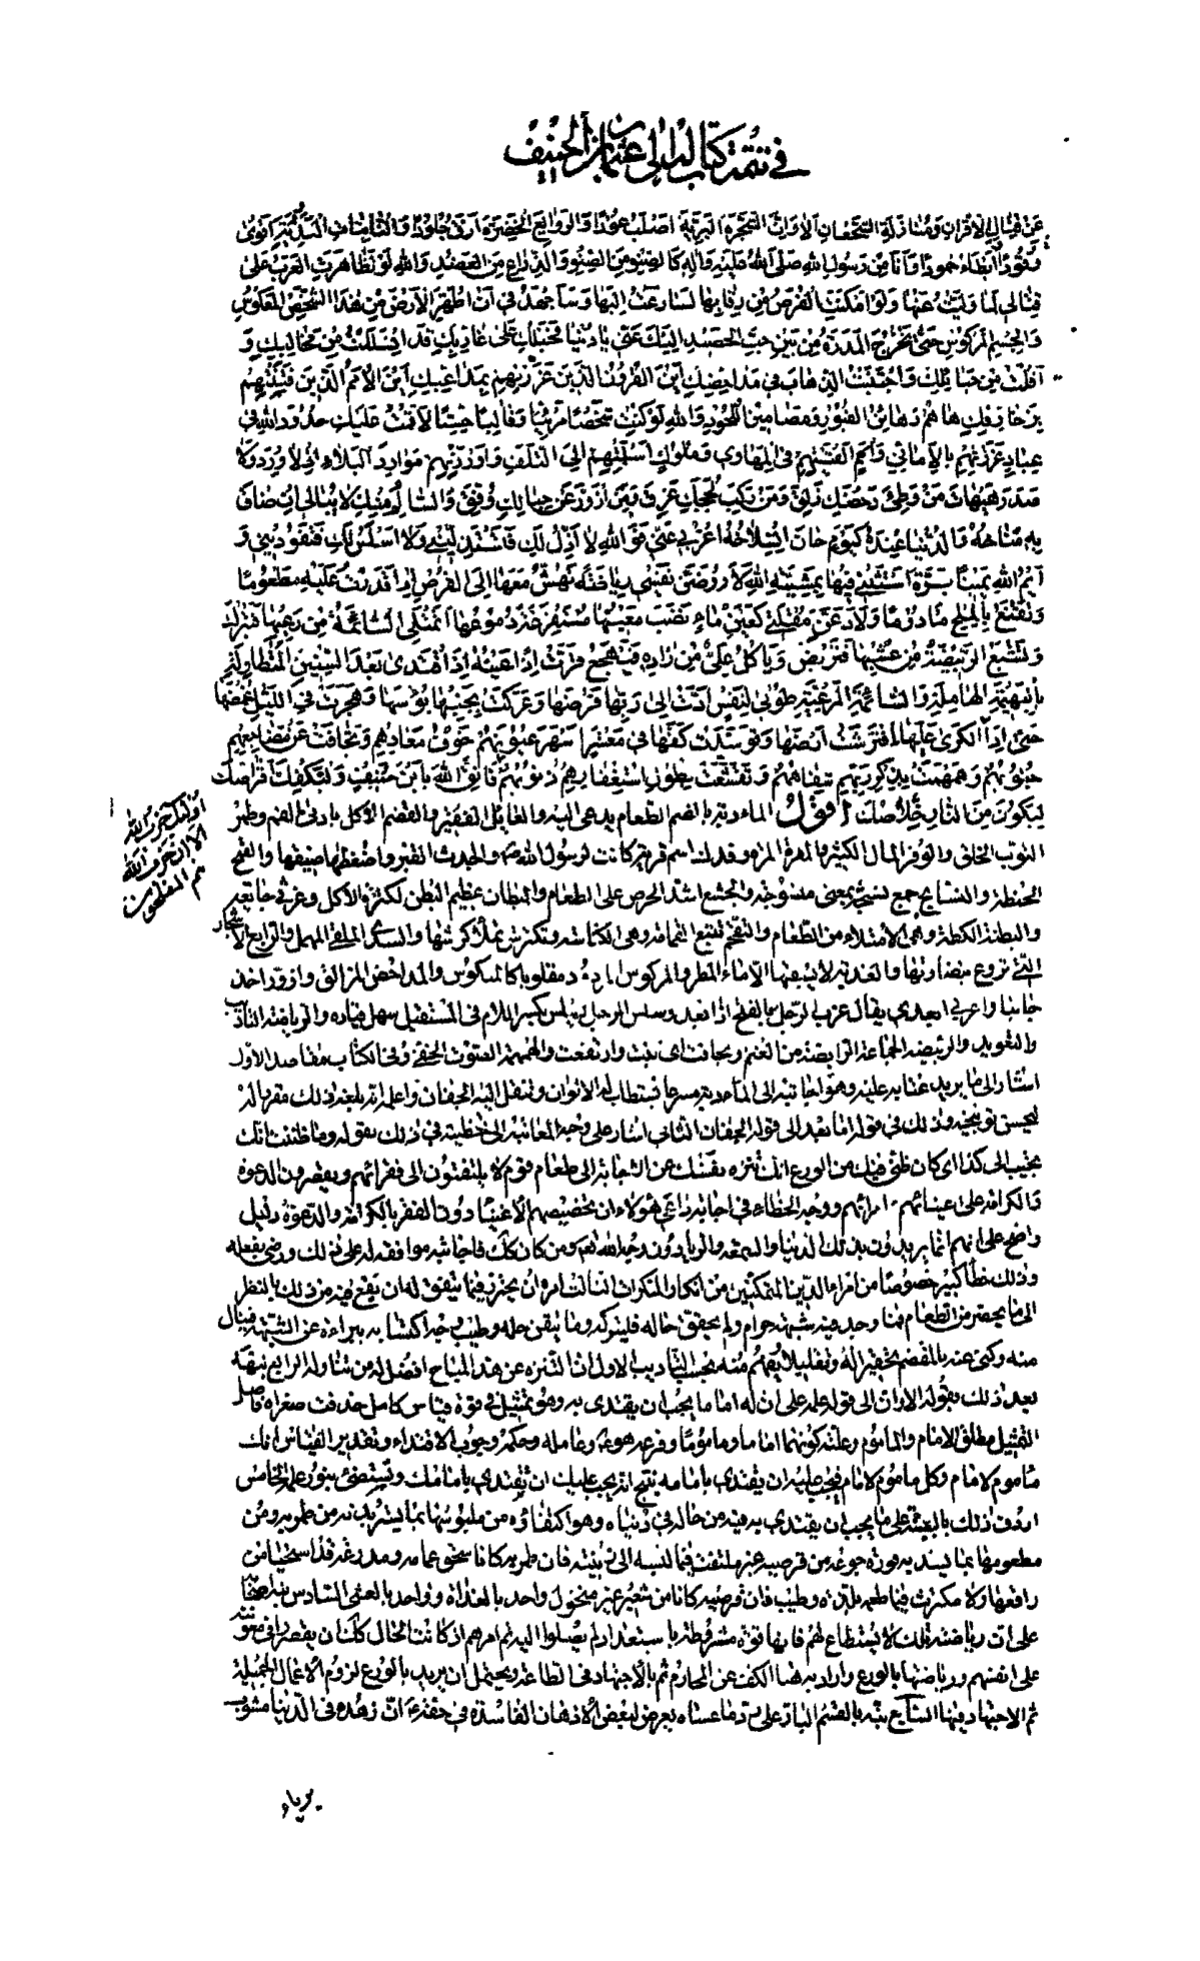 في تتمة كتاب له الى عثمان بن الحنيف
عَنْ قِتَالِ الأقران ومُنَازَلَةِ الشُّجْعَانِ اَلا وَاِنَّ الشَّجَرَةَ البَرِّيَّةَ اَصْلَبُ عُودًا وَالرَّوَائِعَ الخَضِرَةَ اَرَقُّ جُلُودًا وَالنَّابِتَاتِ البَدَوِيَّةَ اَقْوىٰ
وَقُودًا وَاَبْطَاءُ خُمُودًا وَاَنَا مِنْ رَسُولِ اللهِ صَلَّى اللهُ عَلَيْهِ وَآلِهِ كَالصِّنْوِ مِنَ الصِّنْوِ وَالذِّرَاعِ مِنَ العَضُدِ وَاللهِ لَوْ تَظَاهَرَتِ العَرَبُ عَلى
قِتَالِي لَمَا وَلَّيْتُ عَنْهَا وَلَوْ اَمْكَنَتِ الفُرَصُ مِنْ رِقَابِهَا لَسَارَعْتُ اِلَيْهَا وَسَاَجْهَدُ فِي اَنْ اُطَهِّرَ الاَرْضَ مِنْ هٰذَا الشَّخْصِ المَعْكُوسِ
وَالجِسْمِ المَرْكُوسِ حَتّىٰ تَخْرُجَ المَدَرَةُ مِنْ بَيْنِ حَبِّ الحَصِيدِ اِلَيْكَ عَنّي يَا دُنْيَا فَحَبْلُكِ عَلىٰ غَارِبِكِ قَدِ انْسَلَلْتُ مِنْ مَخَالِبِكِ وَ
اَفْلَتُّ مِنْ حَبَائِلِكِ وَاجْتَنَبْتُ الذَّهَابَ فِي مَدَاحِضِكِ اَيْنَ القُرُونُ الَّذِينَ غَرَرْتِهِمْ بِمَدَاعِبِكِ اَيْنَ الاُمَمُ الَّذِينَ فَتَنْتِهِمْ
بِزَخَارِفِكِ هَا هُمْ رَهَائِنُ القُبُورِ وَمَضَامِينُ اللُّحُودِ وَاللهِ لَوْ كُنْتِ شَخْصًا مَرْئِيًّا وَقَالَبًا حِسِّيًّا لاَقَمْتُ عَلَيْكِ حُدُودَ اللهِ فِي
عِبَادٍ غَرَرْتِهِمْ بِالاَمَانِي وَاُمَمٍ اَلْقَيْتِهِمْ فِي المَهَاوِي وَمُلُوكٍ اَسْلَمْتِهِمْ اِلَى التَّلَفِ وَاَوْرَدْتِهِمْ مَوَارِدَ البَلَاءِ اِذْ لَا وِرْدَ وَلَا
صَدَرَ هَيْهَاتَ مَنْ وَطِئَ دَحْضَكِ زَلِقَ وَمَنْ رَكِبَ لُجَجَكِ غَرِقَ وَمَنِ ازْوَرَّ عَنْ حِبَالِكِ وُفِّقَ وَالسَّالِمُ مِنْكِ لَا يُبَالِي اِنْ ضَاقَ
بِهِ مُنَاخُهُ وَالدُّنْيَا عِنْدَهُ كَيَوْمٍ حَانَ انْسِلَاخُهُ اُعْزُبِي عَنّي فَوَاللهِ لَا اَذِلُّ لَكِ فَتَسْتَذِلِّينِي وَلَا اَسْلَسُ لَكِ فَتَقُودِينِي وَ
اَيْمُ اللهِ يَمِينًا بَرَّةً اَسْتَثْنِي فِيهَا بِمَشِيَّةِ اللهِ لَاَرُوضَنَّ نَفْسِي رِيَاضَةً تَهِشُّ مَعَهَا اِلَى القُرْصِ اِذَا قَدَرْتُ عَلَيْهِ مَطْعُومًا
وَتَقْنَعُ بِالمِلْحِ مَأْدُومًا وَلَاَدَعَنَّ مُقْلَتِي كَعَيْنِ مَاءٍ نَضَبَ مَعِينُهَا مُسْتَفْرِغَةً دُمُوعُهَا اَتَمْتَلِئُ السَّائِمَةُ مِنْ رَعْيِهَا فَتَبْرُكَ
وَتَشْبَعُ الرَّبِيضَةُ مِنْ عُشْبِهَا فَتَرْبِضَ وَيَأْكُلُ عَلِيٌّ مِنْ زَادِهِ فَيَهْجَعَ قَرَّتْ اِذًا عَيْنُهُ اِذَا اقْتَدىٰ بَعْدَ السِّنِينَ المُتَطَاوِلَةِ
بِالبَهِيمَةِ الهَامِلَةِ وَالسَّائِمَةِ المَرْعِيَّةِ طُوبىٰ لِنَفْسٍ اَدَّتْ اِلىٰ رَبِّهَا فَرْضَهَا وَعَرَكَتْ بِجَنْبِهَا بُؤْسَهَا وَهَجَرَتْ فِي اللَّيْلِ غُمْضَهَا
حَتّىٰ اِذَا الكَرىٰ غَلَبَهَا افْتَرَشَتْ اَرْضَهَا وَتَوَسَّدَتْ كَفَّهَا فِي مَعْشَرٍ اَسْهَرَ عُيُونَهُمْ خَوْفُ مَعَادِهِمْ وَتَجَافَتْ عَنْ مَضَاجِعِهِمْ
جُنُوبُهُمْ وَهَمْهَمَتْ بِذِكْرِ رَبِّهِمْ شِفَاهُهُمْ وَتَقَشَّعَتْ بِطُولِ اسْتِغْفَارِهِمْ ذُنُوبُهُمْ فَاتَّقِ اللهَ يَا ابْنَ حُنَيْفٍ وَلْتَكْفِكَ اَقْرَاصُكَ
لِيَكُونَ مِنَ النَّارِ خَلَاصُكَ اقول المأدبة بالضم الطعام يدعى اليه والعائل الفقير والقضم الاكل بادنى الفم وطمر
اولئك حزب الله
الا ان حزب الله
هم المفلحون
الثوب الخلق والوفر المال الكثير وفدك اسم قرية كانت لرسول الله ص والجدث القبر واضغطها ضيقها والقمح
الحنطة والجشع اشد الحرص على الطعام والمبطان عظيم البطن لكثرة الاكل وغرثى جايعة
والبطنة الكظة وهى الامتلاء من الطعام والتقمم تتبع القمامة وهى الكناسة وتكترش تملأ كرشها والسدى المهمل والروايع الاشجار
التي تروع بنضارتها والعذية لا يسقيها الا ماء المطر والمركوس المردود مقلوبا كالمعكوس والمداحض المزالق وازور اخذ
جانبا واعزبي ابعدي يقال عزب الرجل بالفتح اذا بعد وسلس الرجل يسلس بكسر اللام في المستقبل سهل قياده والرياضة التأديب
والتعويد والربيضة الجماعة الرابضة من الغنم وتجافت اى نبت وارتفعت والهمهمة الصوت الخفى وفى الكتاب مقاصد الاول
اشار الى ما يريد عتابه عليه وهو اجابته الى المأدبة مسرعا تستطاب له الالوان وتنقل اليه الجفان واعلمه انه بلغه ذلك
ليحسن توبيخه وذلك في قوله اما بعد الى قوله الجفان الثاني اشار على وجه المعاتبة الى خطيئته في ذلك بقوله وما ظننت انك
تجيب الى كذا اى كان ظني فيك من الورع انك تنزه نفسك عن الاجابة الى طعام قوم لا يلتفتون الى فقرائهم ويقصرون الدعوة
والكرامة على اغنيائهم وامرائهم ووجه الخطاء في اجابة داعى هؤلاء ان تخصيصهم الاغنياء دون الفقراء بالكرامة والدعوة دليل
واضح على انهم انما يريدون بذلك الدنيا والسمعة والرياء دون وجه الله تعالى ومن كان كك فاجابته موافقة له على ذلك ورضى بفعله
وذلك خطأ كبير خصوصًا من امراء الدين المتمكنين من انكار المنكرات الثالث امره ان يحترز فيما يتفق له ان يقع فيه من ذلك بالنظر
الى ما يحضر من الطعام فما وجد فيه شبهة حرام ولم يحقق حاله فليتركه وما يتقن حله وطيب وجه اكتسابه ببراءة عن الشبهة فينال
منه وكنى عنه بالمقضم تحقيرا له وتقليلا ويفهم منه بحسب التأديب الاول ان التنزه عن هذا المباح افضل له من تناوله الرابع نبهه
بعد ذلك بقوله الا وان الى قوله علمه على ان له اماما يجب ان يقتدى به وهو تمثيل في قوة قياس كامل حذفت صغراه فاصل
التمثيل مطلق الامام والمأموم وعلته كونهما اماما ومأموما وفرعه هو ع وعامله وحكمه وجوب الاقتداء وتقدير القياس انك
مأموم لامام وكل مأموم لامام فيجب عليه ان يقتدى بامامه ينتج انه يجب عليك ان تقتدى بامامك وتستضئ بنور علمه الخامس
اردف ذلك بالتنبيه على ما يجب ان يقتدى به فيه من حاله في دنياه وهو اكتفاؤه من ملبوسها بما يستر بدنه من طمريه ومن
مطعومها بما يسد به فورة جوعه من قرصيه غير ملتفت فيما لبسه الى زينة فان طمريه كانا سحق عمامة ومدرعة قد استحيا من
راقعها ولا مكترث فيما طعم بلذة وطيب فان قرصيه كانا من شعير غير منخول واحد بالغداة وواحد بالعشى السادس نبه اصحابه
على ان رياضته تلك لا يستطاع لهم فانها قوة مشروطة باستعداد لم يصلوا اليه ثم امرهم اذ كانت الحال كك ان يقصروا في معونته
على انفسهم ورياضتها بالورع واراد به هنا الكف عن المحارم ثم بالاجتهاد في الطاعة ويحتمل ان يريد بالورع لزوم الاعمال الجميلة
ثم الاجتهاد فيها السابع نبه بالقسم البار على رد ما عساه يعرض لبعض الاذهان الفاسدة في حقه من ان زهده في الدنيا مشوب
برياء